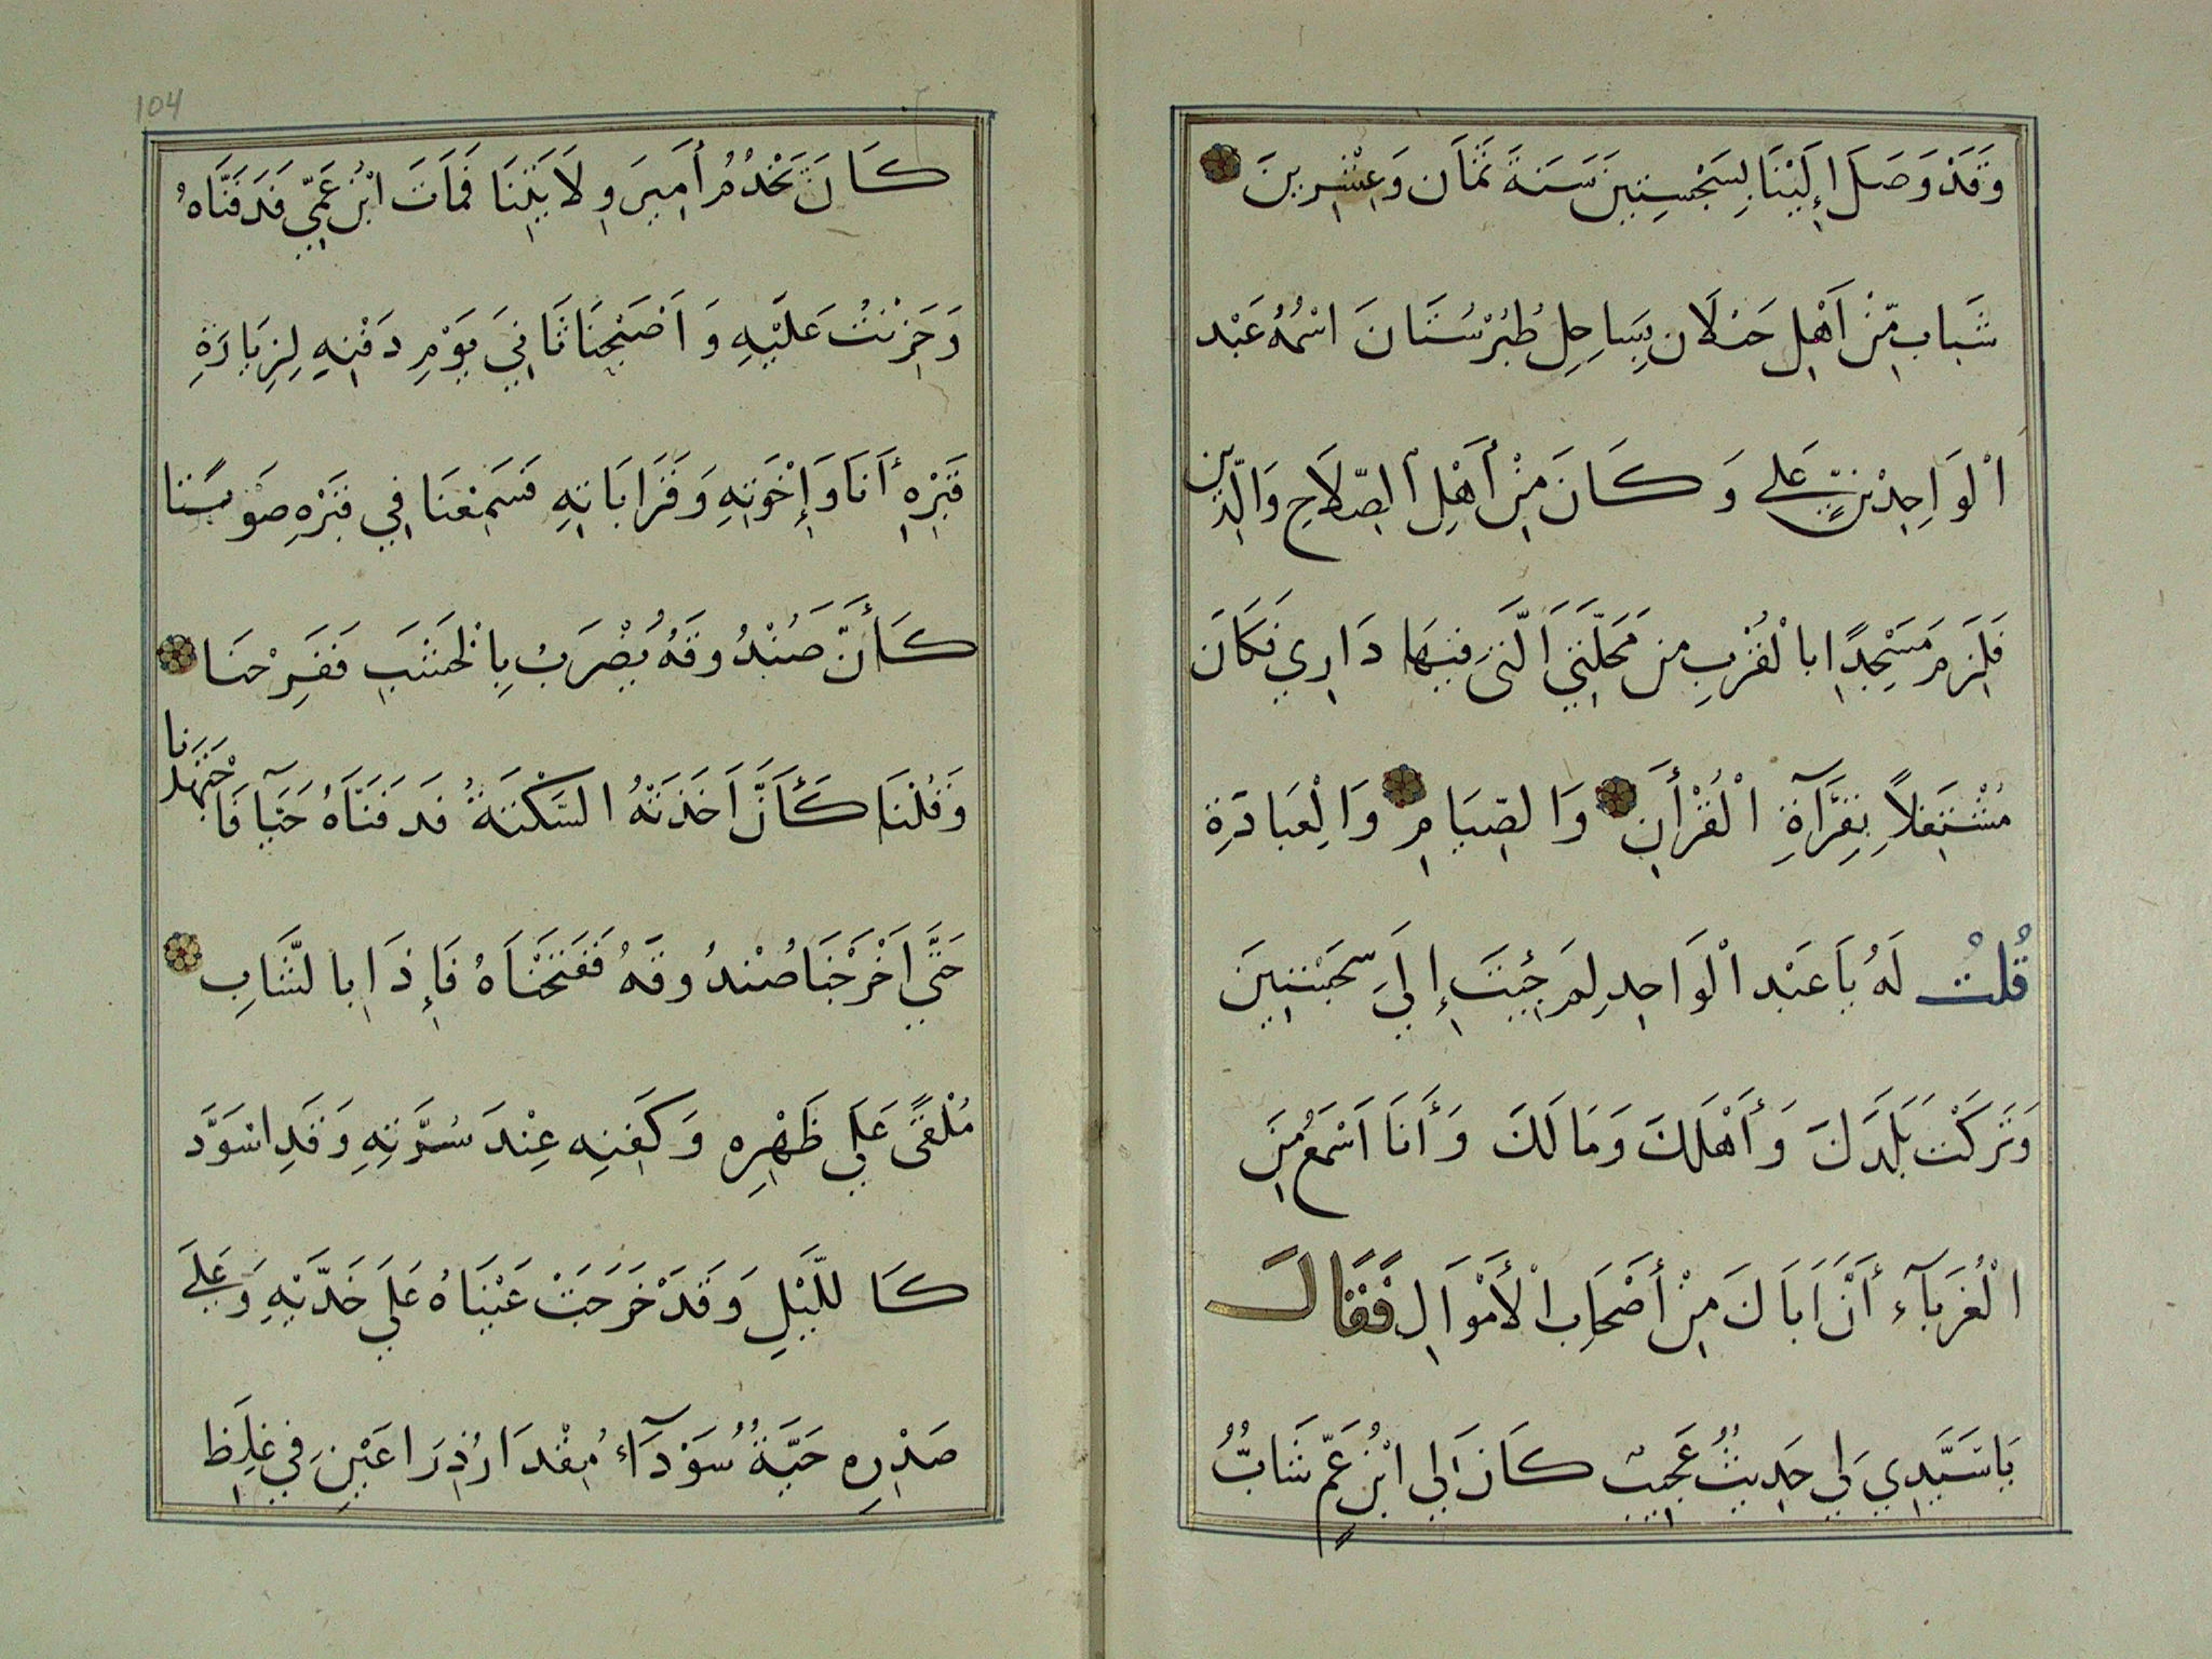 وَقَدْ وَصَلَ إِلَيْنَا بِسَجْسِتِينَ سَنَةَ ثَمَان وَعِشْرِينَ
شَباب مِّنْ اَهْلِ جَنْلَان بِسَاحِلِ طُبُرْسُتَانَ اسْمُهُ عَبْد
الْوَاحِدْ بْنِ عَلى وَكَانَ مِنْ أَهْلِ الصِّلَاحِ وَالدِّين
فَلَزِمَ مَسْجِدًا بالْقُرْبِ مِن مَحَلَّتِي الَّتِي فِيهَا دَارِي فَكَانَ
مُشْتَغِلاً بِقِرَآةِ الْقُرْأَنِ وَالصِّيَامِ وَالْعِبَادَةِ
قُلْتُ لَهُ يَا عَبْد الْوَاحِدِ لِمَ جِئْتَ إِلَى سَجَسْتِينَ
وَتَرَكْتَ بَلَدَكَ وَأَهْلَكَ وَمَالَكَ وَأَنَا اَسْمَعُ مِنَ
الْغُرَبَآءِ أَنَّ اَبَاكَ مِنْ أَصْحَابِ الْأَمْوَالِ فَقَالَ
يَا سَيِّدِي لِي حَدِيثُ عَجِيبٌ كَانَ لِي ابْنُ عَمٍّ شَابٌّ
كَانَ يَخْدُمُ أَمِيرَ وِلَايَتِنَا فَمَاتَ ابْنُ عَمِّي فَدَفَنَّاهُ
وَحَزِنْتُ عَلَيْهِ وَاَصْبَحْنَا ثَانِيَ يَوْمِ دَفْنِهِ لِزِيَارَةِ
قَبْرِهِ أَنَا وَإِخْوَتِهِ وَقَرَابَاتِهِ فَسَمِعْنَا فِي قَبْرِهِ صَوْتًا
كَأَنَّ صَنْدُوقَهُ يُضْرَبُ بِالْخَشَبِ فَفَرِحْنَا
وَقُلْنَا كَأَنَّ اَخَذَتْهُ السَّكْتَةُ فَدَفَنَّاهُ حَيًّا فَاجْتَهَدْنَا
حَتَّى اَخْرَجْنَا صُنْدُوقَهُ فَفَتَحْنَاهُ فَإِذَا بالشَّابِ
مُلْقىً عَلَى ظَهْرِهِ وَكَفَنِه عِنْدَ سُرَّتِهِ وَقَدِ اسْوَدَّ
كَاللَّيْلِ وَقَدْ خَرَجَتْ عَيْنَاهُ عَلَى خَدَّيْهِ وَعَلَى
صَدْرِهِ حَيَّةُ سُوَدَآءُ مِقْدَارُ ذِرَاعَيْنِ فِي غِلَظِ
104